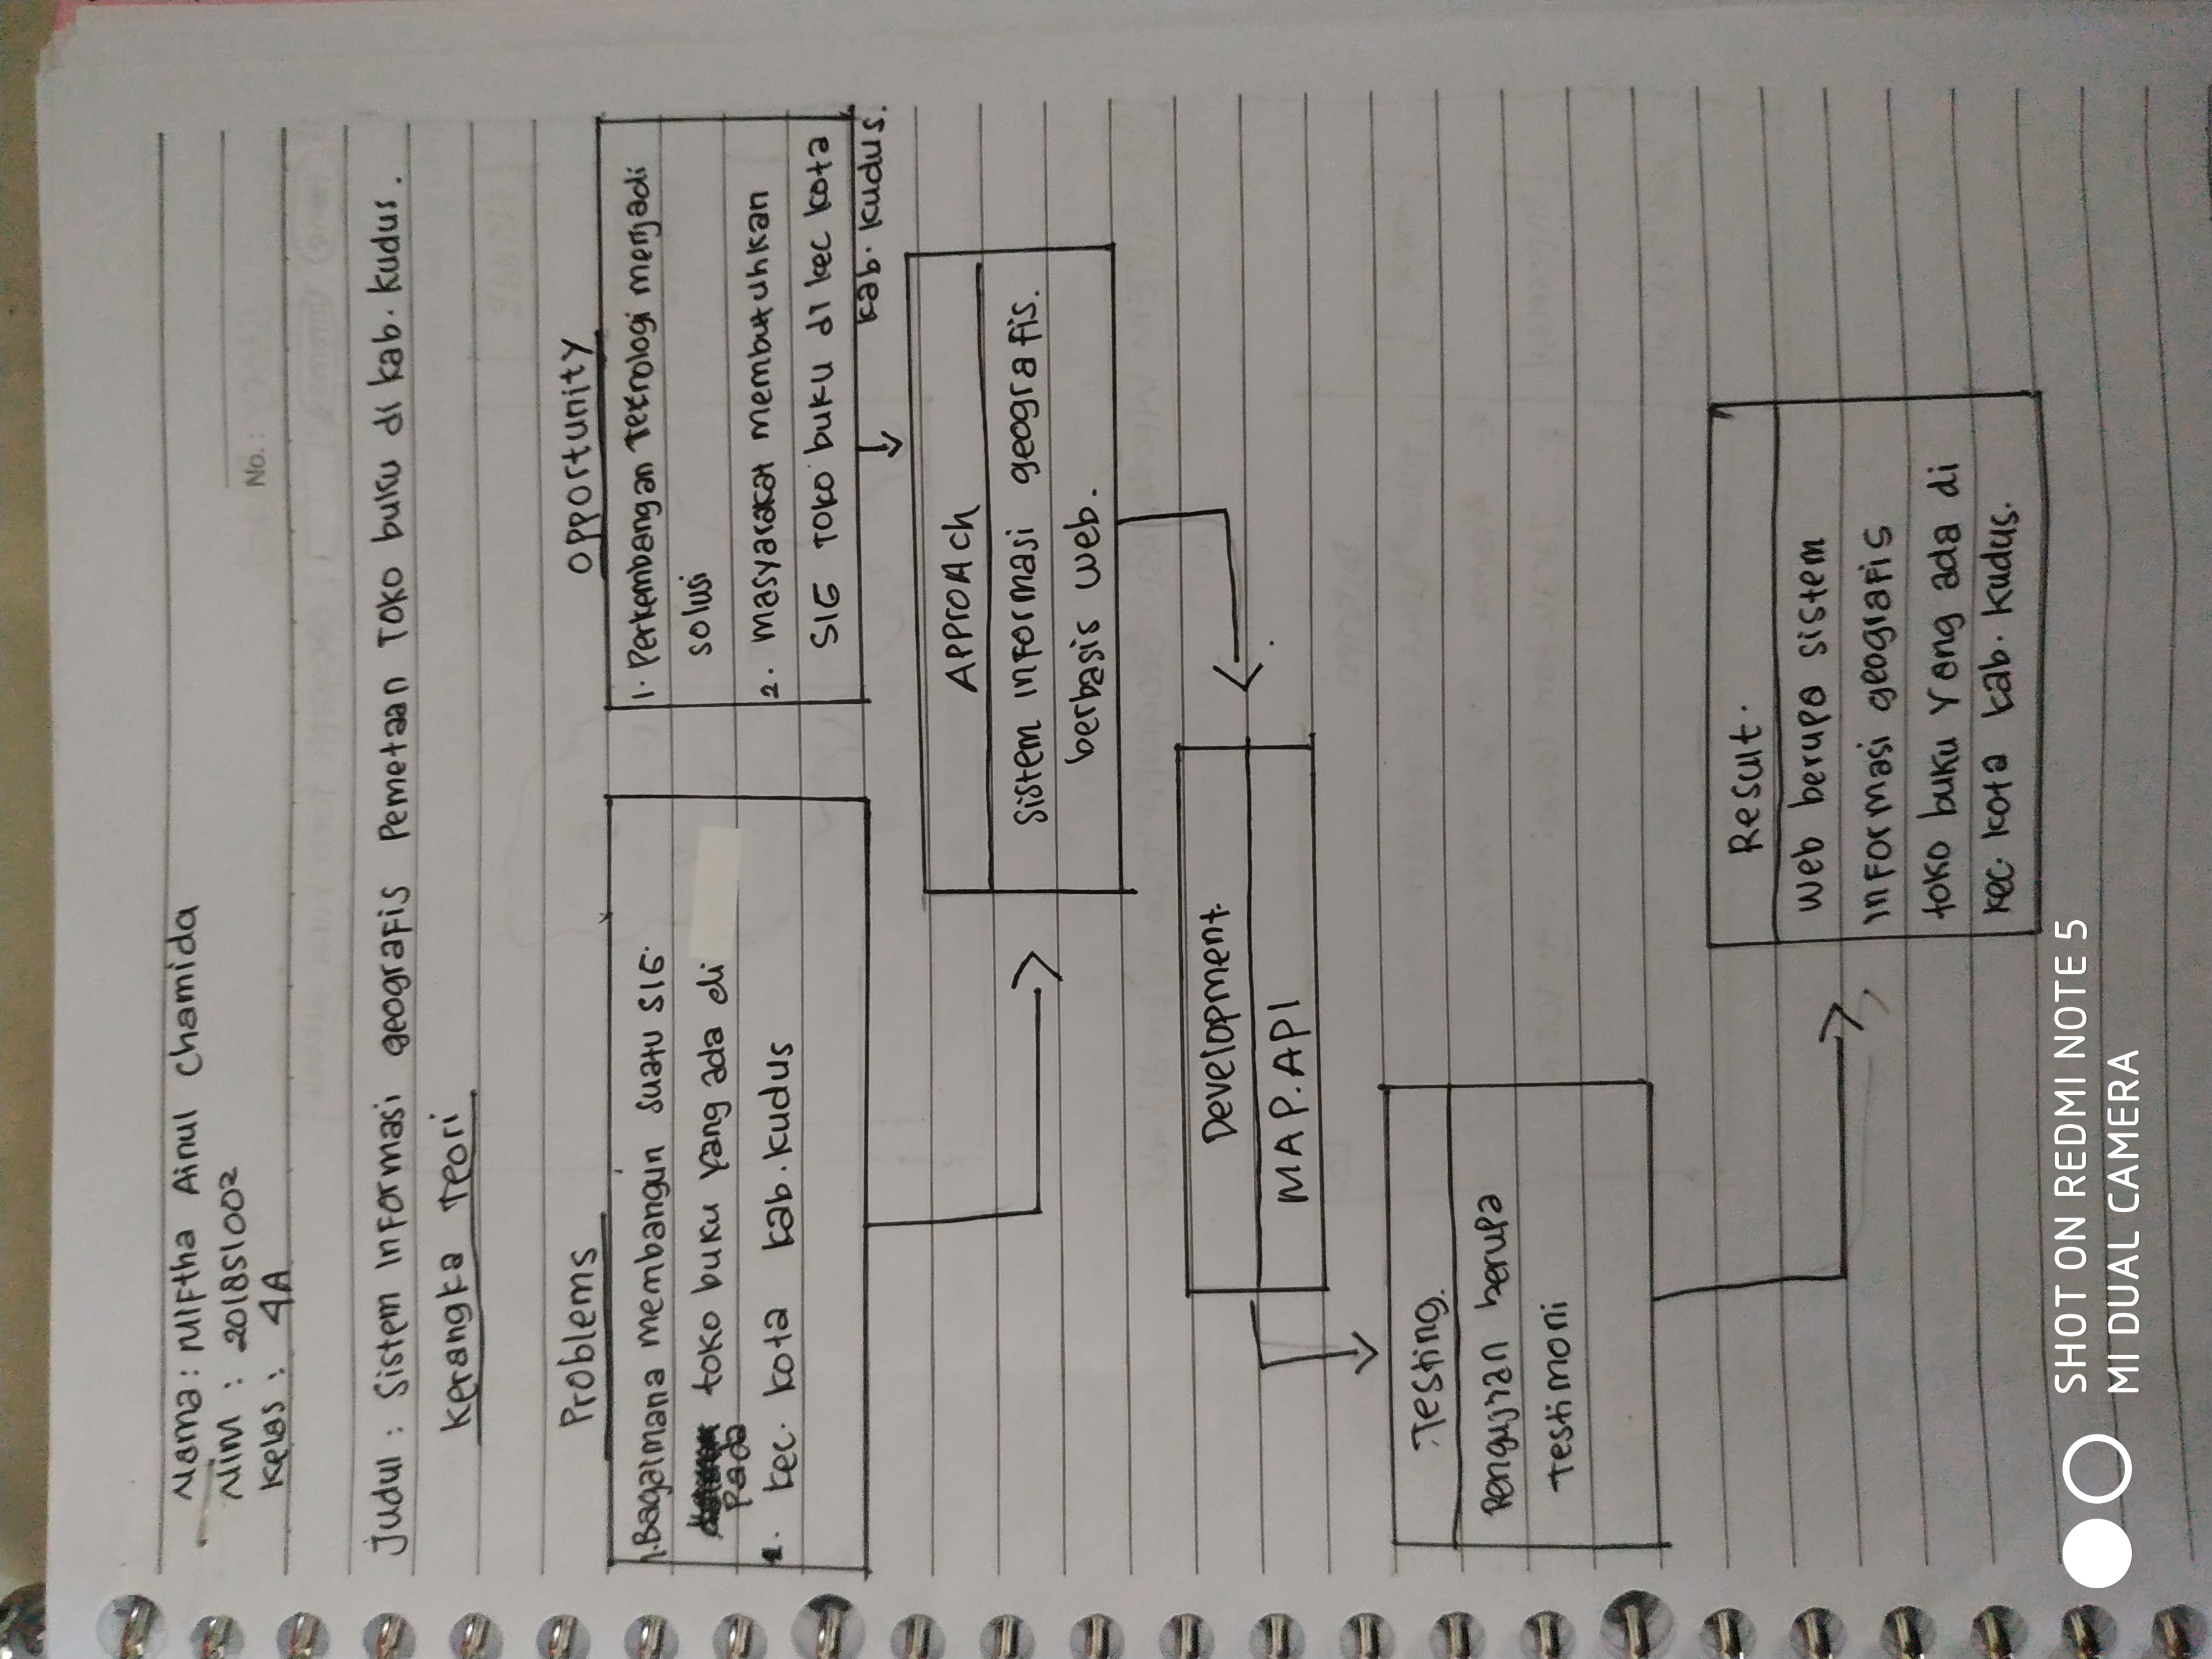 Nama: Miftha Ainul Chamida
NIM : 201851002
Kelas : 4A
No. :
Judul : Sistem Informasi geografis Pemetaan Toko buku di kab. Kudus.
Kerangka Teori
Problems
1. Bagaimana membangun suatu SIG.
toko buku yang ada di
Pada
kec. kota kab. kudus
Opportunity
1. Perkembangan Teknologi menjadi
solusi
2. masyarakat membutuhkan
SIG Toko buku di kec kota
kab. kudus.
Approach
Sistem Informasi geografis.
berbasis web.
Development.
MAP.API
Testing.
Pengujian berupa
Testimoni
Result.
web berupa sistem
informasi geografis
toko buku yang ada di
kec. kota kab. Kudus.
SHOT ON REDMI NOTE 5
MI DUAL CAMERA